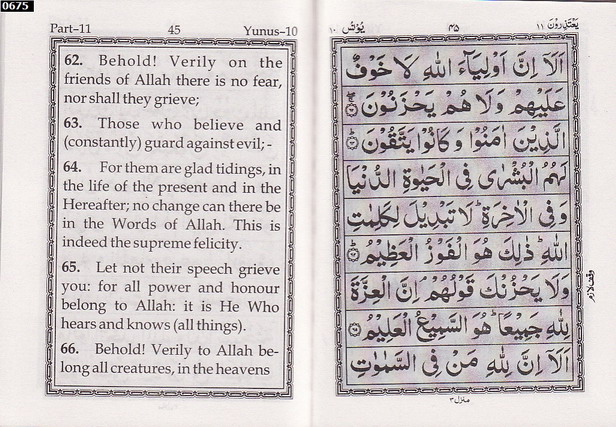 0675
Part-11 45 Yunus-10
62. Behold! Verily on the
friends of Allah there is no fear,
nor shall they grieve;
63. Those who believe and
(constantly) guard against evil;-
64. For them are glad tidings, in
the life of the present and in the
Hereafter; no change can there be
in the Words of Allah. This is
indeed the supreme felicity.
65. Let not their speech grieve
you: for all power and honour
belong to Allah: it is He Who
hears and knows (all things).
66. Behold! Verily to Allah be-
long all creatures, in the heavens
يَعْتَذِرُوْنَ ١١ ۴۵ يُوْنُسُ ١٠
اَلَاۤ اِنَّ اَوْلِيَآءَ اللّٰهِ لَا خَوْفٌ
عَلَيْهِمْ وَلَا هُمْ يَحْزَنُوْنَ
الَّذِيْنَ اٰمَنُوْا وَكَانُوْا يَتَّقُوْنَ
لَهُمُ الْبُشْرٰى فِى الْحَيٰوةِ الدُّنْيَا
وَفِى الْاٰخِرَةِ ؕ لَا تَبْدِيْلَ لِكَلِمٰتِ
اللّٰهِ ؕ ذٰلِكَ هُوَ الْفَوْزُ الْعَظِيْمُ
وَلَا يَحْزُنْكَ قَوْلُهُمْ ۘ اِنَّ الْعِزَّةَ
لِلّٰهِ جَمِيْعًا ؕ هُوَ السَّمِيْعُ الْعَلِيْمُ
اَلَاۤ اِنَّ لِلّٰهِ مَنْ فِى السَّمٰوٰتِ
وقف لازم
منزل ٣